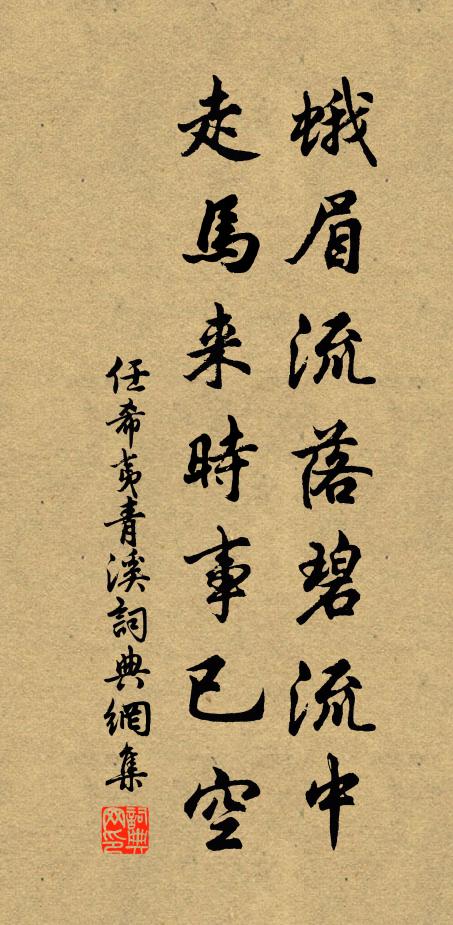 蛾眉流落碧流中
走馬来時事已空
任希夷青溪詞典網集
詞典網印